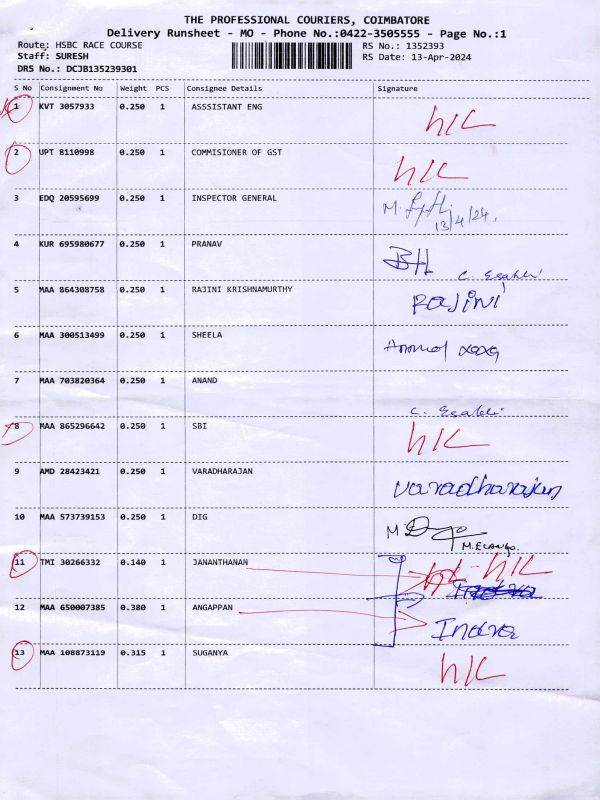 THE PROFESSIONAL COURIERS, COIMBATORE
Delivery Runsheet - MO - Phone No.:0422-3505555 - Page No.:1
Route: HSBC RACE COURSE
RS No.: 1352393
Staff: SURESH
RS Date: 13-Apr-2024
DRS No.: DCJB135239301
S No Consignment No Weight PCS Consignee Details Signature
1 KVT 3057933 0.250 1 ASSSISTANT ENG h/L
2 UPT 8110998 0.250 1 COMMISIONER OF GST h/L
3 EDQ 20595699 0.250 1 INSPECTOR GENERAL M.
13/4/24.
4 KUR 695980677 0.250 1 PRANAV BH
C. Esakki
5 MAA 864308758 0.250 1 RAJINI KRISHNAMURTHY RAJINI
6 MAA 300513499 0.250 1 SHEELA
7 MAA 703820364 0.250 1 ANAND
C. Esakki
8 MAA 865296642 0.250 1 SBI h/L
9 AMD 28423421 0.250 1 VARADHARAJAN Varadharajan
10 MAA 573739153 0.250 1 DIG M
M.ELANGO.
11 TMI 30266332 0.140 1 JANANTHANAN h/L
12 MAA 650007385 0.380 1 ANGAPPAN Indra
13 MAA 108873119 0.315 1 SUGANYA h/L